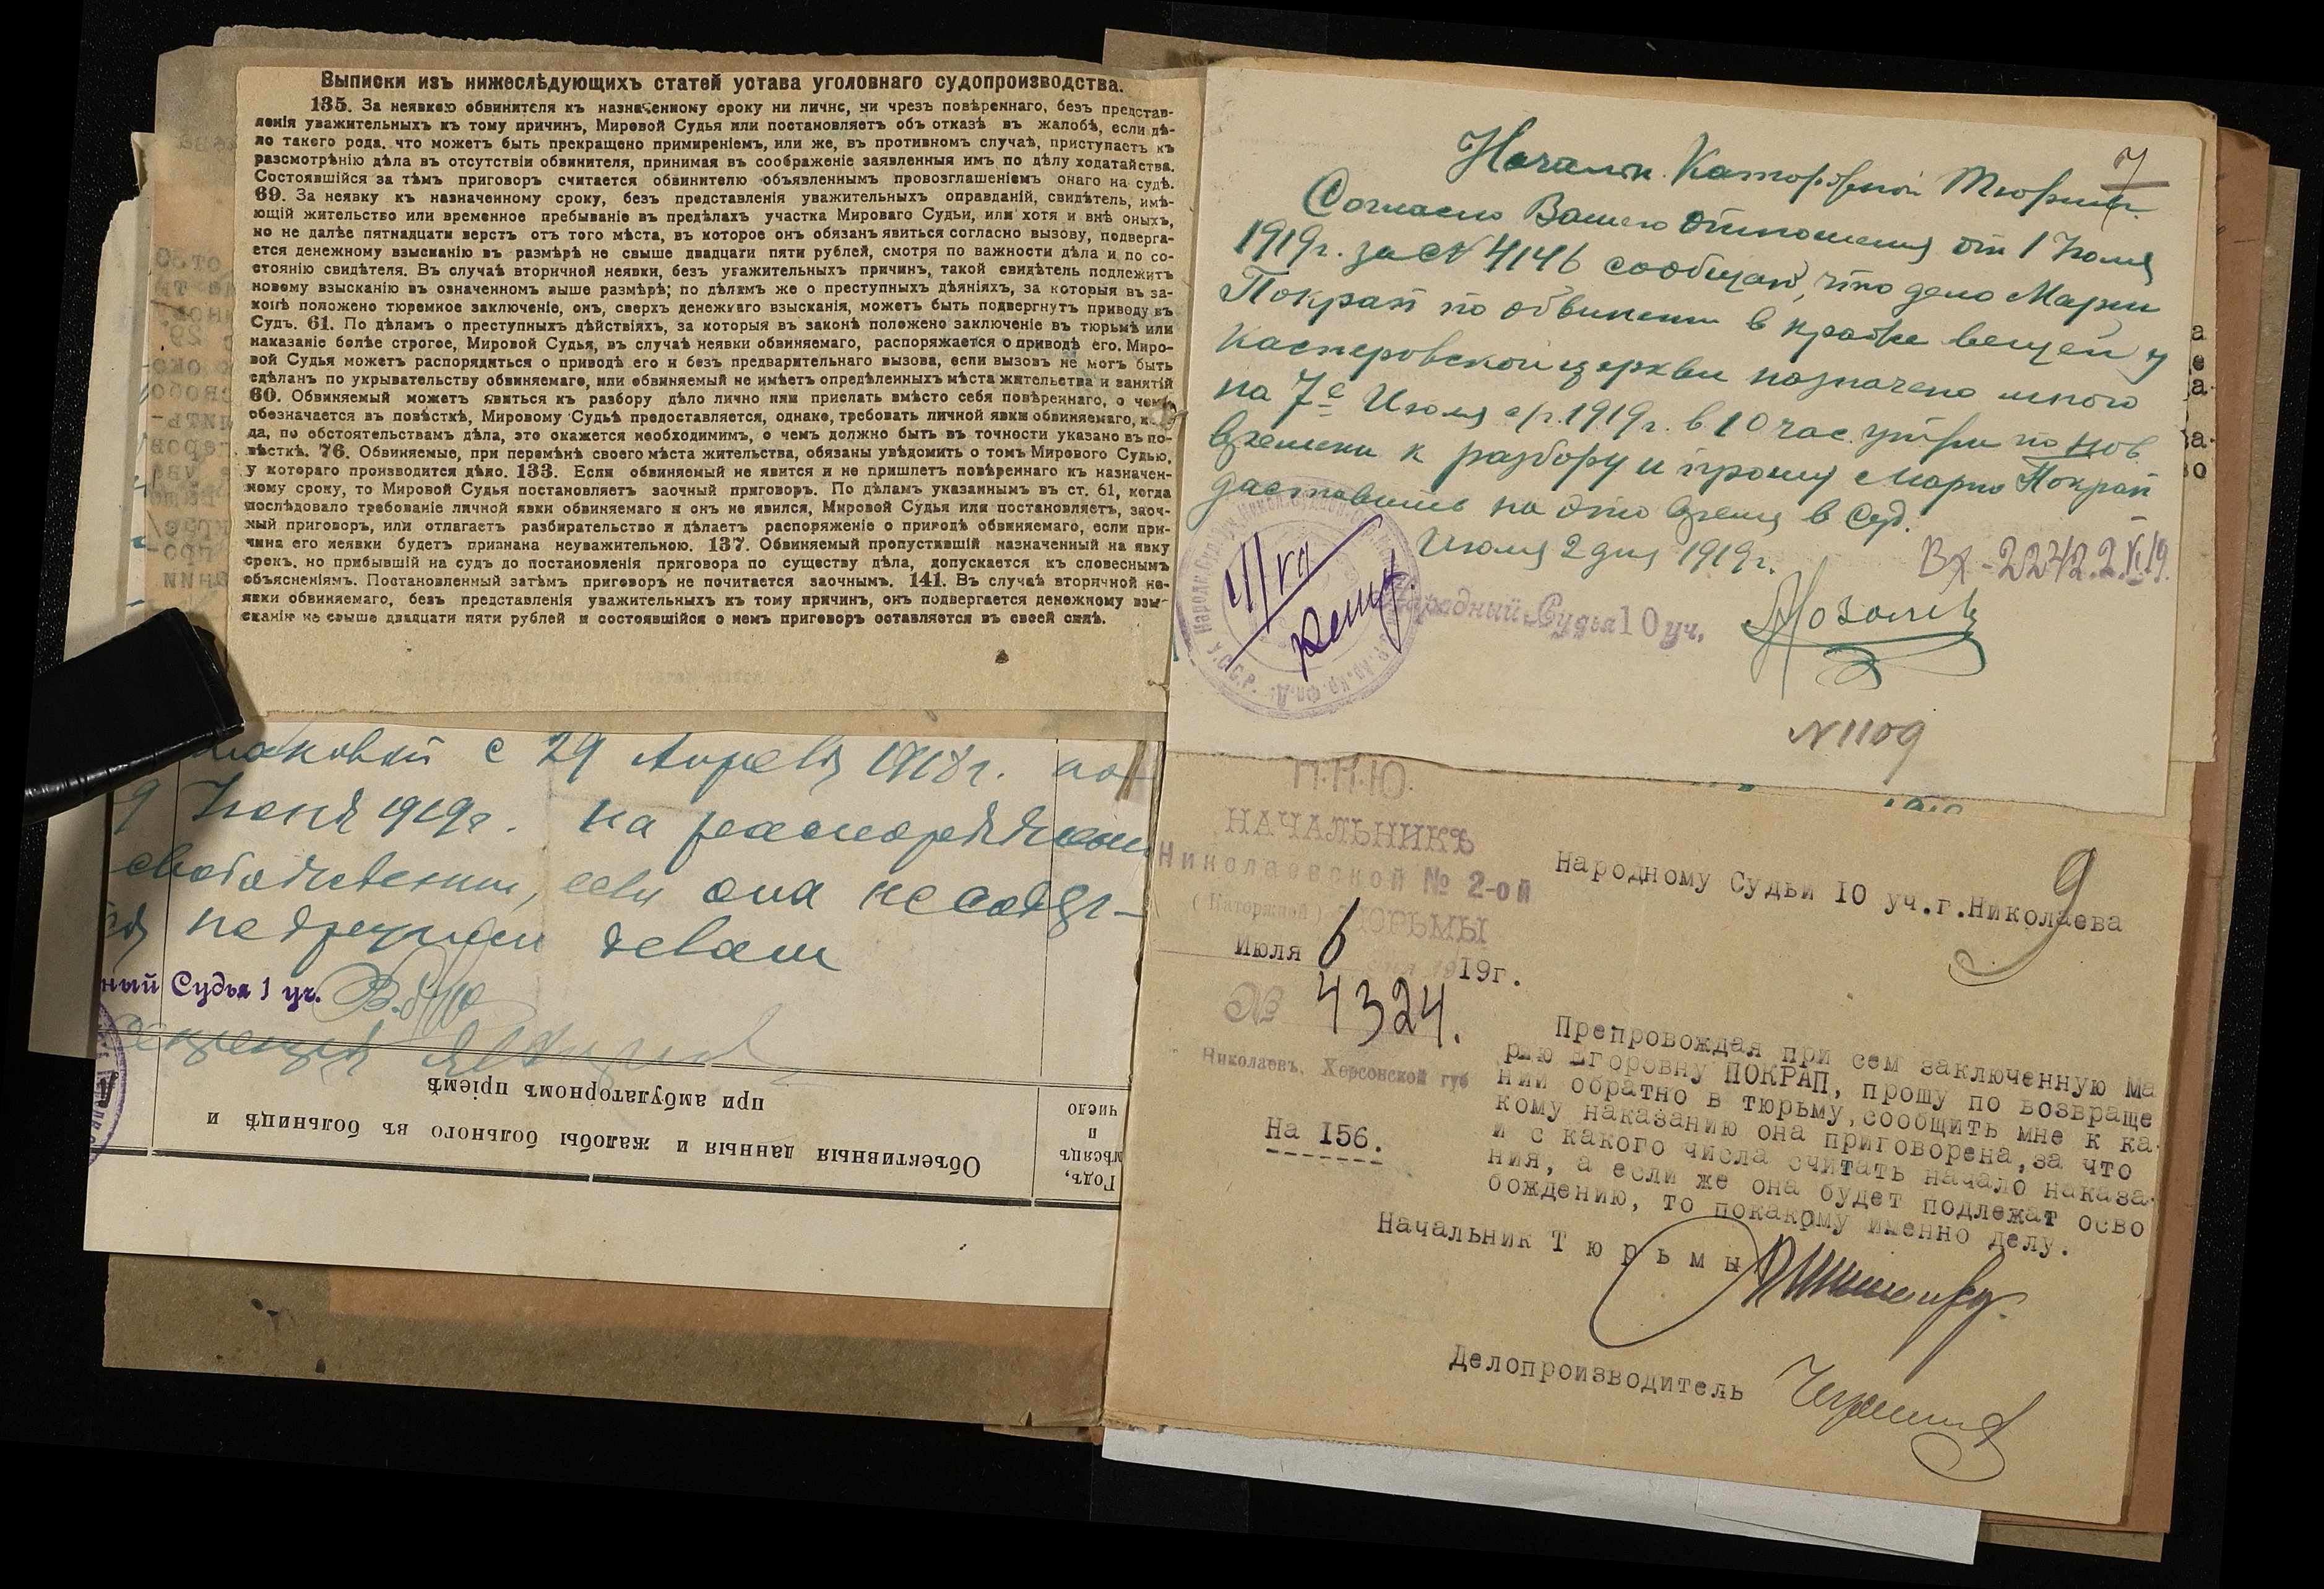 Выписки изъ нижеслѣдующихъ статей устава уголовнаго судопроизводства.
135. За неявкою обвинителя къ назначенному сроку ни личнс, ни чрезъ повѣреннаго, безъ представ-
ленія уважительныхъ къ тому причин, Мировой Судья или постановляетъ объ отказѣ въ жалобѣ, если дѣ-
ло такего рода, что можетъ быть прекращено примиреніемъ, или же, въ противномъ случаѣ, приступаетъ къ
разсмотрѣнію дѣла въ отсутствіи обвинителя, принимая въ соображеніе заявленныя имъ по дѣлу ходатайства.
Состоявшійся за тѣмъ приговоръ считается обвинителю объявленнымъ провозглашеніемъ онаго на судѣ.
69. За неявку къ назначенному сроку, безъ представленія уважительныхъ оправданій, свидѣтель, имѣ-
ющій жительство или временное пребываніе въ предѣлахъ участка Мироваго Судьи, или хотя и внѣ оныхъ,
но не далѣе пятнадцати верстъ отъ того мѣста, въ которое онъ обязанъ явиться согласно вызову, подверга-
ется денежному взысканію въ размѣрѣ не свыше двадцати пяти рублей, смотря по важности дѣла и по со-
стоянію свидѣтеля. Въ случаѣ вторичной неявки, безъ уважительныхъ причинъ, такой свидѣтель подлежитъ
новому взысканію въ означенномъ выше размѣрѣ; по дѣламъ же о преступныхъ дѣяніяхъ, за которыя въ за-
конѣ положено тюремное заключеніе, онъ, сверхъ денежнаго взысканія, можетъ быть подвергнутъ приводу въ
Судъ. 61. По дѣламъ о преступныхъ дѣйствіяхъ, за которыя въ законѣ положено заключеніе въ тюрьмѣ или
наказаніе болѣе строгое, Мировой Судья, въ случаѣ неявки обвиняемаго, распоряжается о приводѣ его. Миро-
вой Судья можетъ распорядиться о приводѣ его и безъ предварительнаго вызова, если вызовъ не могъ быть
сдѣланъ по укрывательству обвиняемаго, или обвиняемый не имѣетъ опредѣленныхъ мѣста жительства и занятій
60. Обвиняемый можетъ явиться къ разбору дѣло лично или прислать вмѣсто себя повѣреннаго, о чемъ
обозначается въ повѣсткѣ, Мировому Судьѣ предоставляется, однако, требовать личной явки обвиняемаго, ког-
да, по обстоятельствамъ дѣла, это окажется необходимимъ, о чемъ должно быть въ точности указано въ по-
вѣсткѣ. 76. Обвиняемые, при перемѣнѣ своего мѣста жительства, обязаны увѣдомить о томъ Мирового Судью,
у котораго производится дѣло. 133. Если обвиняемый не явится и не пришлетъ повѣреннаго къ назначен-
ному сроку, то Мировой Судья постановляетъ заочный приговоръ. По дѣламъ указаннымъ въ ст. 61, когда
послѣдовало требованіе личной явки обвиняемаго и онъ не явился, Мировой Судья или постановляетъ, заоч-
ный приговоръ, или отлагаетъ разбирательство и дѣлаетъ распоряженіе о приводѣ обвиняемаго, если при-
чина его неявки будетъ признана неуважительною. 137. Обвиняемый пропустившій назначенный на явку
срокъ, но прибывшій на судъ до постановленія приговора по существу дѣла, допускается къ словеснымъ
объясненіямъ. Постановленный затѣмъ приговоръ не почитается заочнымъ. 141. Въ случаѣ вторичной не-
явки обвиняемаго, безъ представленія уважительныхъ къ тому причин, онъ подвергается денежному взы-
сканію не свыше двадцати пяти рублей и состоявшійся о немъ приговоръ оставляется въ своей силѣ.
с 29 Апреля 1918г. по
9 Июня 1919г. на
если она не
по другим делам
ный Судья 1 уч.
при амбулаторномъ пріемѣ
Объективныя данныя и жалобы больного въ больницѣ и
Годъ,
мѣсяцъ
и
число
7
Начальн. Каторжной Тюрьмы.
Согласно Вашего отношения от 1 Июля
1919г. за № 4146 сообщаю, что дело Марии
Покрап по обвинению в краже вещей у
Касперовской церкви назначено мною
на 7е Июля с/г. 1919г. в 10 час. утра по нов.
времени к разбору и прошу Марию Покрап
доставить на это время в Суд.
Июля 2 дня 1919г.
Вх-2242.
Народный Судья 10 уч.
У.С.С.Р.
N 1109
Н.К.Ю.
НАЧАЛЬНИКЪ
Николаевской № 2-ой
(Каторжной) ТЮРЬМЫ
Июля 6 1919г.
№ 4324.
Николаевъ, Херсонской губ
На 156.
9
Народному Судьи 10 уч.г.Николаева
Препровождая при сем заключенную Ма
рию Егоровну ПОКРАП, прошу по возвраще
нии обратно в тюрьму,сообщить мне к ка-
кому наказанию она приговорена,за что
и с какого числа считать начало наказа-
ния, а если же она будет подлежат осво
бождению, то покакому именно делу.
Начальник Т ю р ь м ы
Делопроизводитель